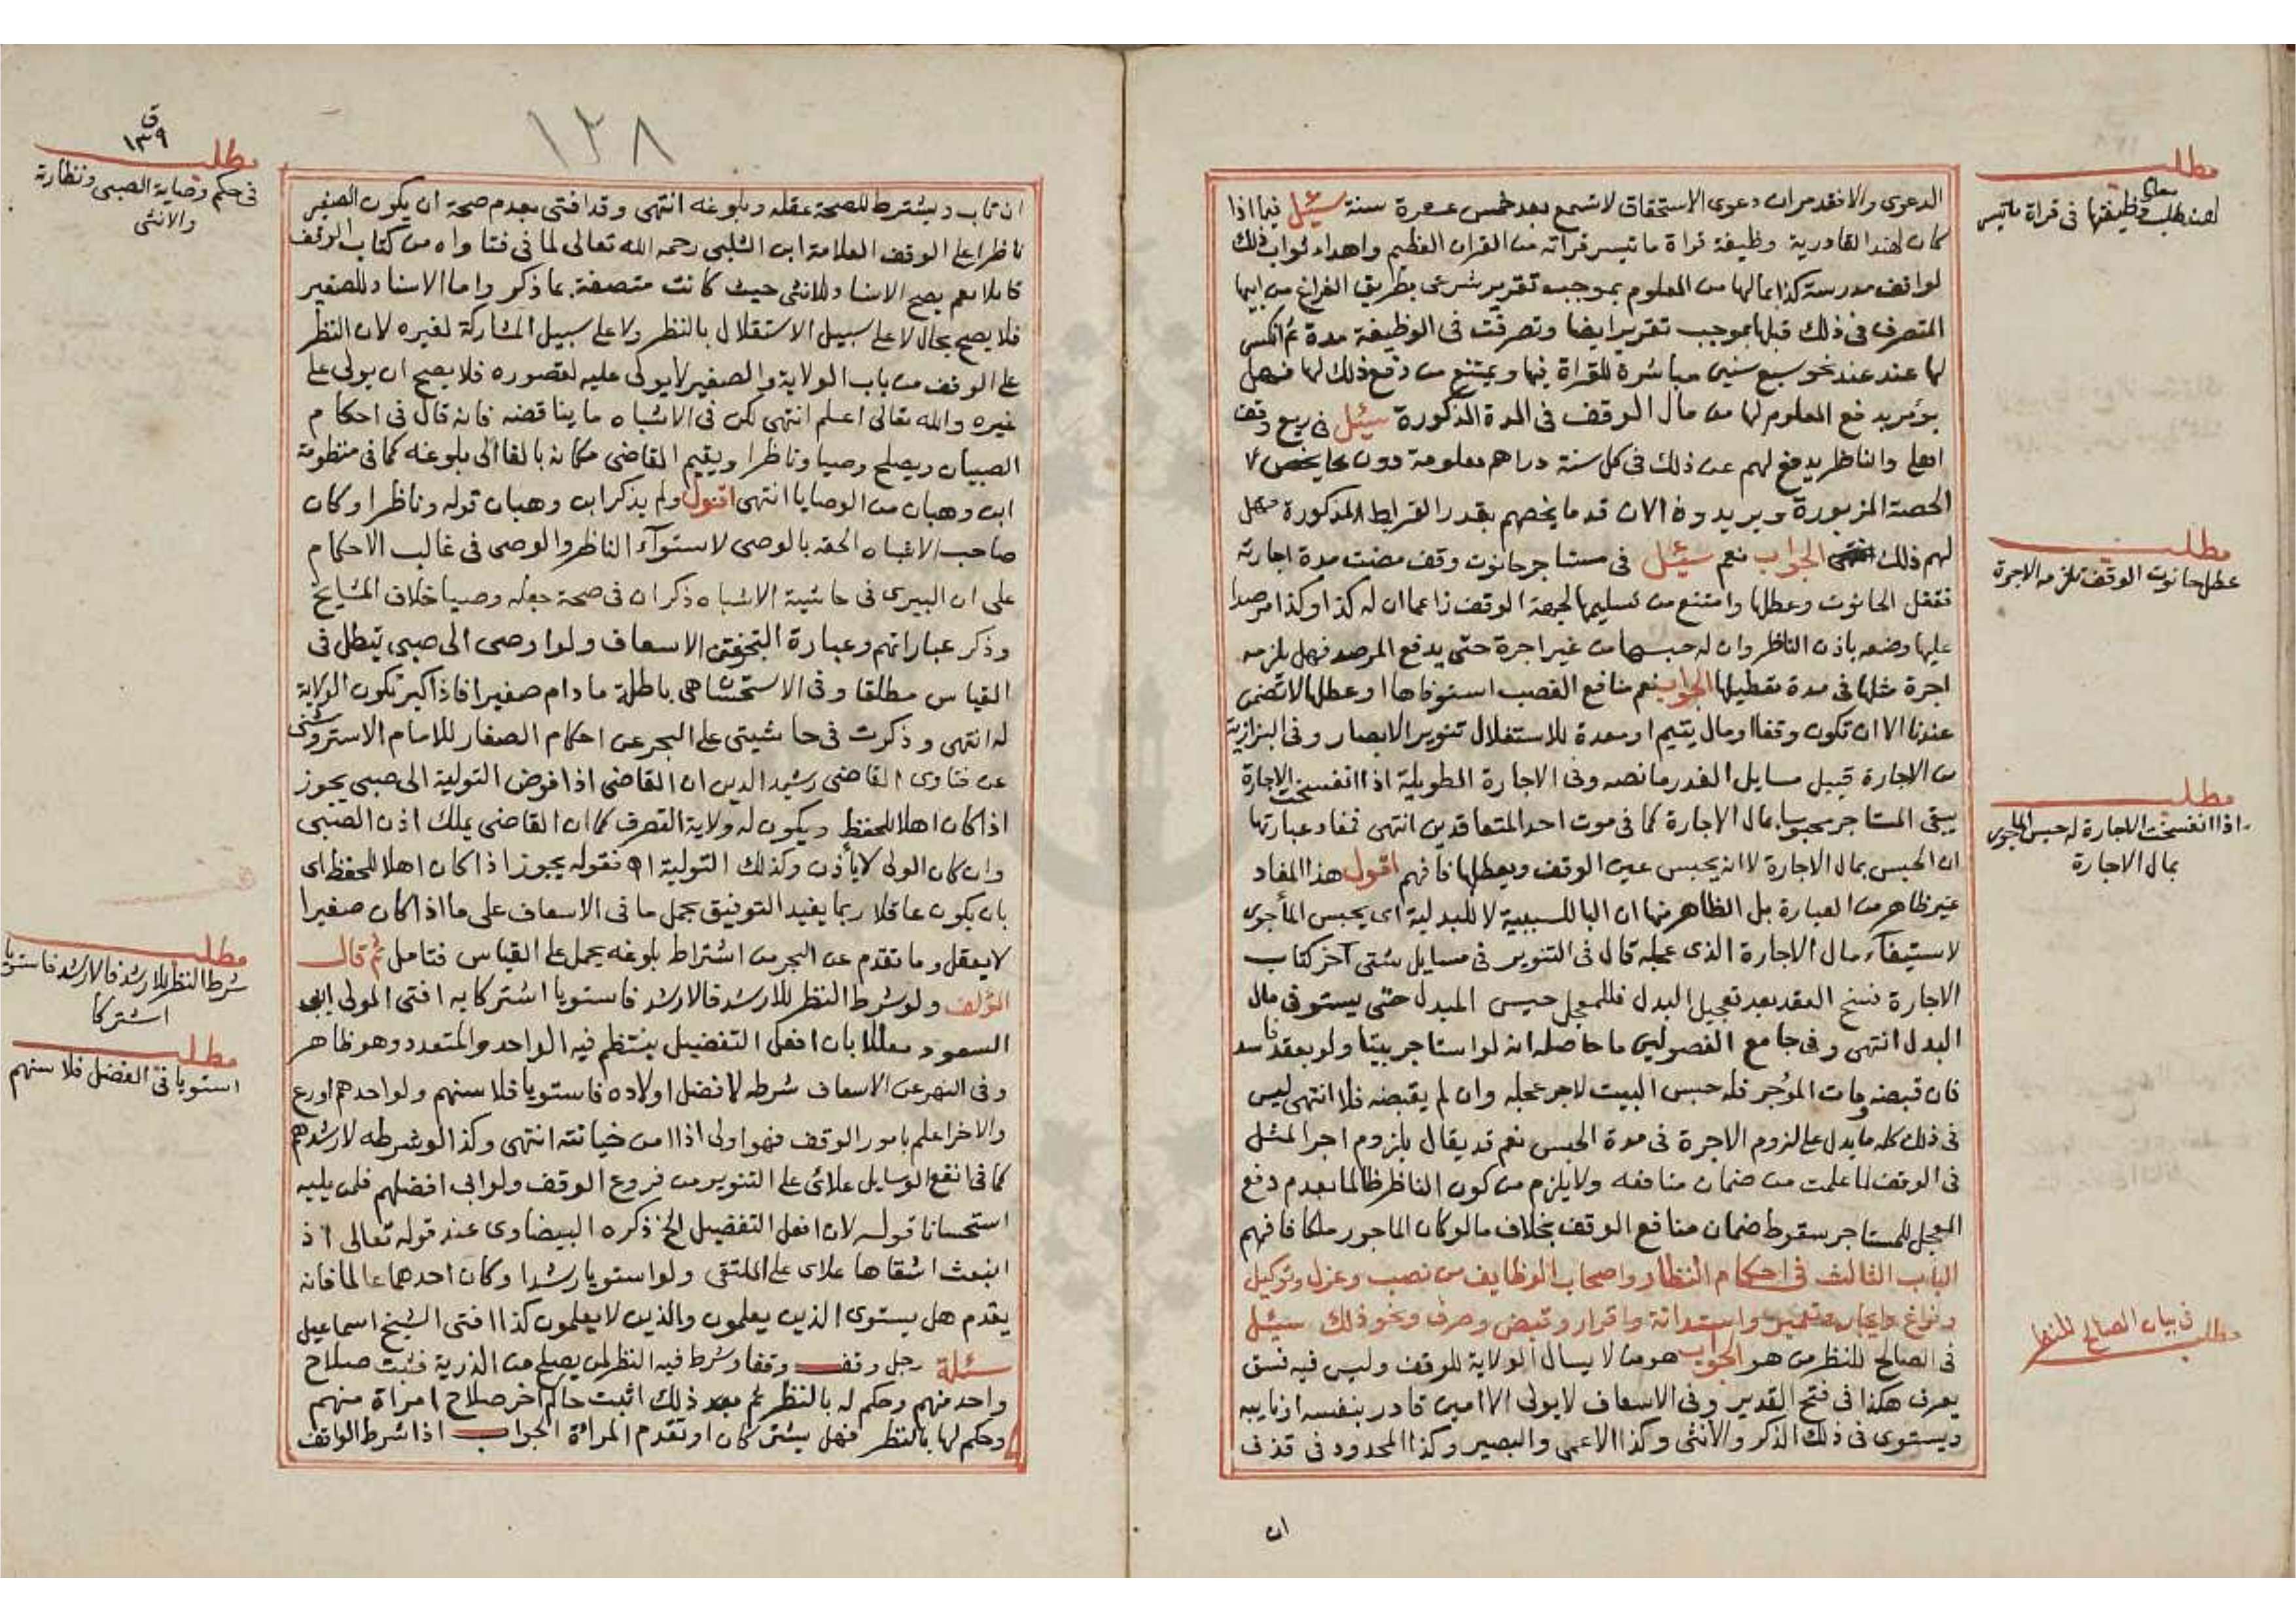 مطلب
لهند طلب معلوم وظيفتها في قراة ماتيسر
الدعوى والا فقد مر ان دعوى الاستحقاق لا تسمع بعد خمس عشرة سنة سئيل فيما اذا
كان لهند القادرية وظيفة قراة ما تيسر قراته من القران العظيم واهداء ثواب ذلك
لواقف مدرسة كذا بمالها من المعلوم بموجب تقرير شرعي بطريق الفراغ من ابيها
المتصرف في ذلك قبلها بموجب تقرير ايضا وتصرفت في الوظيفة مدة ثم انكسر
لها عند نحو سبع سنين مباشرة للقراة فيها ويمتنع من دفع ذلك لها فهل
يؤمر بدفع المعلوم لها من مال الوقف في المدة المذكورة سيئل في ريع وقف
اهلي والناظر يدفع لهم عن ذلك في كل سنة دراهم معلومة دون ما يخص
الحصة المزبورة ويريدون الان قدر ما يخصهم بقدر القراريط المذكورة فهل
لهم ذلك الجواب نعم سئيل في مستاجر حانوت وقف مضت مدة اجارته
مطلب
عطل حانوت الوقف تلزمه الاجرة
فقفل الحانوت وعطلها وامتنع من تسليمها لجهة الوقف زاعما ان له كذا وكذا مرصدا
عليها وضعه باذن الناظر وان له حبسها من غير اجرة حتى يدفع المرصد فهل يلزمه
اجرة مثلها في مدة تعطيلها الجواب نعم منافع الغصب استوفاها او عطلها لا تضمن
عندنا الا ان تكون وقفا او مال يتيم او معدة للاستغلال تنوير الابصار وفي البزازية
من الاجارة قبيل مسايل الغدر ما نصه وفي الاجارة الطويلة اذا انفسخت الاجارة
مطلب
اذا انفسخت الاجارة له حبس الماجور
بمال الاجارة
يبقى المستاجر محبوسا بمال الاجارة كما في موت احد المتعاقدين انتهى فمفاد عبارتها
ان الحبس بمال الاجارة لا انه يحبس عين الوقف ويعطلها فافهم اقول هذا المفاد
غير ظاهر من العبارة بل الظاهر منها ان البا للسببية لا للبدلية اى يحبس المأجور
لاستيفآء مال الاجارة الذى عجله قال في التنوير في مسايل شتى آخر كتاب
الاجارة فسخ العقد بعد تعجيل البدل فللمعجل حبس المبدل حتى يستوفي مال
البدل انتهى وفي جامع الفصولين ما حاصله انه لو استاجر بيتا ولو بعقد فاسد
فان قبضه ومات المؤجر فله حبس البيت لاجر عجله وان لم يقبضه فلا انتهى ليس
في ذلك كله ما يدل على لزوم الاجرة في مدة الحبس نعم قد يقال بلزوم اجر المثل
في الوقف لما علمت من ضمان منافعه ولا يلزم من كون الناظر ظالما بعدم دفع
المعجل للمستاجر سقوط ضمان منافع الوقف بخلاف ما لو كان الماجور ملكا فافهم
الباب الثالث في احكام النظار واصحاب الوظايف من نصب وعزل وتوكيل
وفراغ وايجار وتعمير واستدانة واقرار وقبض وصرف ونحو ذلك سيئل
في بيان الصالح للنظر
مطلب
في الصالح للنظر من هو الجواب هو من لا يسال الولاية للوقف وليس فيه فسق
يعرف هكذا في فتح القدير وفي الاسعاف لا يولى الا امين قادر بنفسه او نايبه
ويستوى في ذلك الذكر والانثى وكذا الاعمى والبصير وكذا المحدود في قذف
ان
١٣٨
ق
١٣٩
مطلب
في حكم وصاية الصبي ونظارته
والانثى
ان تاب ويشترط للصحة عقله وبلوغه انتهى وقد افتى بعدم صحة ان يكون الصغير
ناظرا على الوقف العلامة ابن الشلبي رحمه الله تعالى لما في فتاواه من كتاب الوقف
قايلا نعم يصح الاسناد للانثى حيث كانت متصفة بما ذكر واما الاسناد للصغير
فلا يصح بحال لا على سبيل الاستقلال بالنظر ولا على سبيل المشاركة لغيره لان النظر
على الوقف من باب الولاية والصغير لا يولى عليه لقصوره فلا يصح ان يولى على
غيره والله تعالى اعلم انتهى لكن في الاشباه ما يناقضه فانه قال في احكام
الصبيان ويصلح وصيا وناظرا ويقيم القاضى مكانه بالغا الى بلوغه كما في منظومة
ابن وهبان من الوصايا انتهى اقول ولم يذكر ابن وهبان قوله وناظرا وكان
صاحب الاشباه الحقه بالوصى لاستوآء الناظر والوصي في غالب الاحكام
على ان البيرى في حاشية الاشباه ذكر ان في صحة جعله وصيا خلاف المشايخ
وذكر عباراتهم وعبارة الاسعاف ولو اوصى الى صبي تبطل في
القياس مطلقا وفي الاستحسان هي باطلة مادام صغيرا فاذا كبر تكون الولاية
له انتهى وذكرت في حاشيتي على البحر عن احكام الصغار للامام الاستروشنى
عن فتاوى القاضى رشيد الدين ان القاضي اذا فوض التولية الى صبي يجوز
اذا كان اهلا للحفظ ويكون له ولاية التصرف كما ان القاضي يملك اذن الصبي
وان كان الولى لا يأذن وكذلك التولية اه فقوله يجوز اذا كان اهلا للحفظ اى
بان يكون عاقلا ربما يفيد التوفيق بحمل ما في الاسعاف على ما اذا كان صغيرا
لا يعقل وما تقدم عن البحر من اشتراط بلوغه يحمل على القياس فتامل ثم قال
مطلب
شرط النظر للارشد فالارشد فاستويا
اشتركا
المؤلف ولو شرط النظر للارشد فالارشد فاستويا اشتركا به افتى المولى ابى
السعود معللا بان افعل التفضيل ينتظم فيه الواحد والمتعدد وهو ظاهر
مطلب
استويا في الفضل فلاسنهم
وفي النهر عن الاسعاف شرطه لافضل اولاده فاستويا فلاسنهم ولو احدهم اورع
والاخر اعلم بامور الوقف فهو اولى اذا امن خيانته انتهى وكذا لو شرطه لارشدهم
كما في انفع الوسايل علائى على التنوير من فروع الوقف ولو ابى افضلهم فلمن يليه
استحسانا قوله لان افعل التفضيل الخ ذكره البيضاوى عند قوله تعالى اذ
انبعث اشقاها علاى على الملتقى ولو استويا رشدا وكان احدهما عالما فانه
يقدم هل يستوى الذين يعلمون والذين لا يعلمون كذا افتى الشيخ اسماعيل
سئلة رجل وقف وقفا وشرط فيه النظر لمن يصلح من الذرية فثبت صلاح
واحد منهم وحكم له بالنظر ثم بعد ذلك اثبت حاكم اخر صلاح امراة منهم
وحكم لها بالنظر فهل يشتركان او تقدم المراة الجواب اذا شرط الواقف